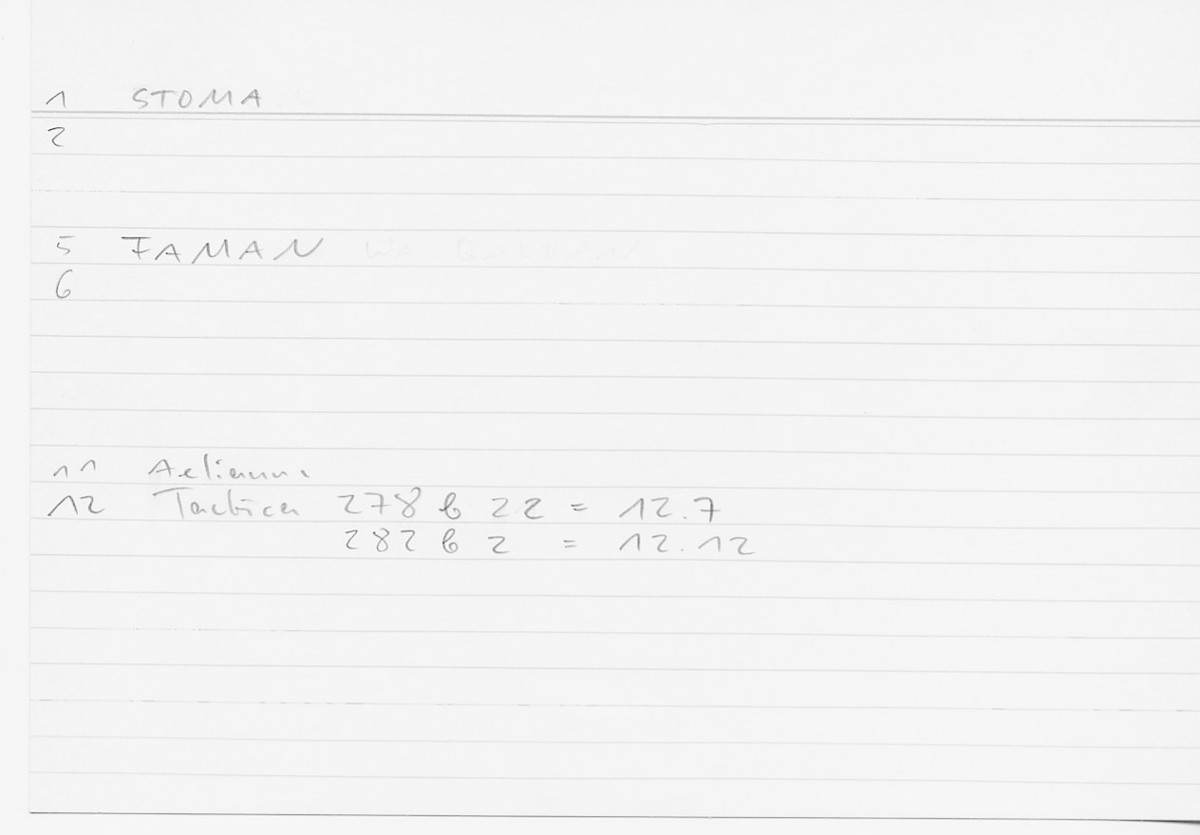 1 STOMA
2
5 FAMAN
6
11 Aelianus
12 Tactica 278 b 22 = 12.7
282 b 2 = 12.12